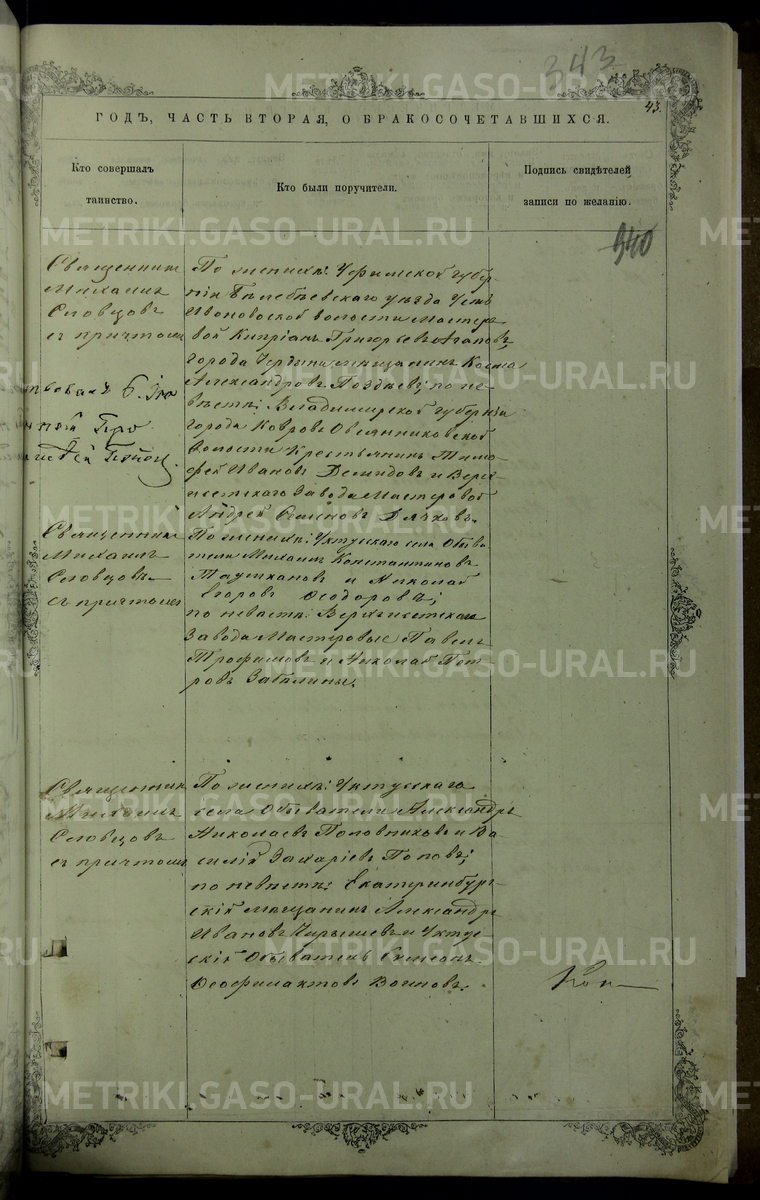 343
43.
ГОДЪ, ЧАСТЬ ВТОРАЯ, О БРАКОСОЧЕТАВШИХСЯ.
Кто совершалъ
таинство.
Кто были поручители.
Подпись свидѣтелей
записи по желанію.
940
Священникъ
Михаилъ
Словцовъ
съ причтомъ
По женихѣ: Уфимской губер-
ніи Белебѣевскаго уѣзда Усть
Ивановской волости Мастеро-
вой Кипріанъ Григорьевъ Агаповъ,
города Чердыни мѣщанинъ Косма
Александровъ Поздѣевъ; по не-
вѣстѣ: Владимірской губерніи
города Ковровъ Овсянниковской
волости Крестьянинъ Тимо-
фей Ивановъ Демидовъ и Верхъ-
исетскаго Завода Мастеровой
Андрей Семеновъ Дьячковъ.
Священникъ
Михаилъ
Словцовъ
съ причтомъ
По женихѣ: Уктусскаго села Обыва-
тели Михаилъ Константиновъ
и Николай
Егоровъ Ѳеодоровъ;
по невѣстѣ: Верхъисетскаго
Завода Мастеровые Павелъ
Трофимовъ и Николай Пет-
ровъ Забѣлины.
Священникъ
Михаилъ
Словцовъ
съ причтомъ
По женихѣ: Уктусскаго
села Обыватели Александръ
Николаевъ Половниковъ и Ва-
силій Захаріевъ Поповъ;
по невѣстѣ: Екатеринбург-
скій мѣщанинъ Александръ
Ивановъ и Уктус-
скій Обыватель Симеонъ
Ѳеофилактовъ Воиновъ.
METRIKI.GASO-URAL.RU